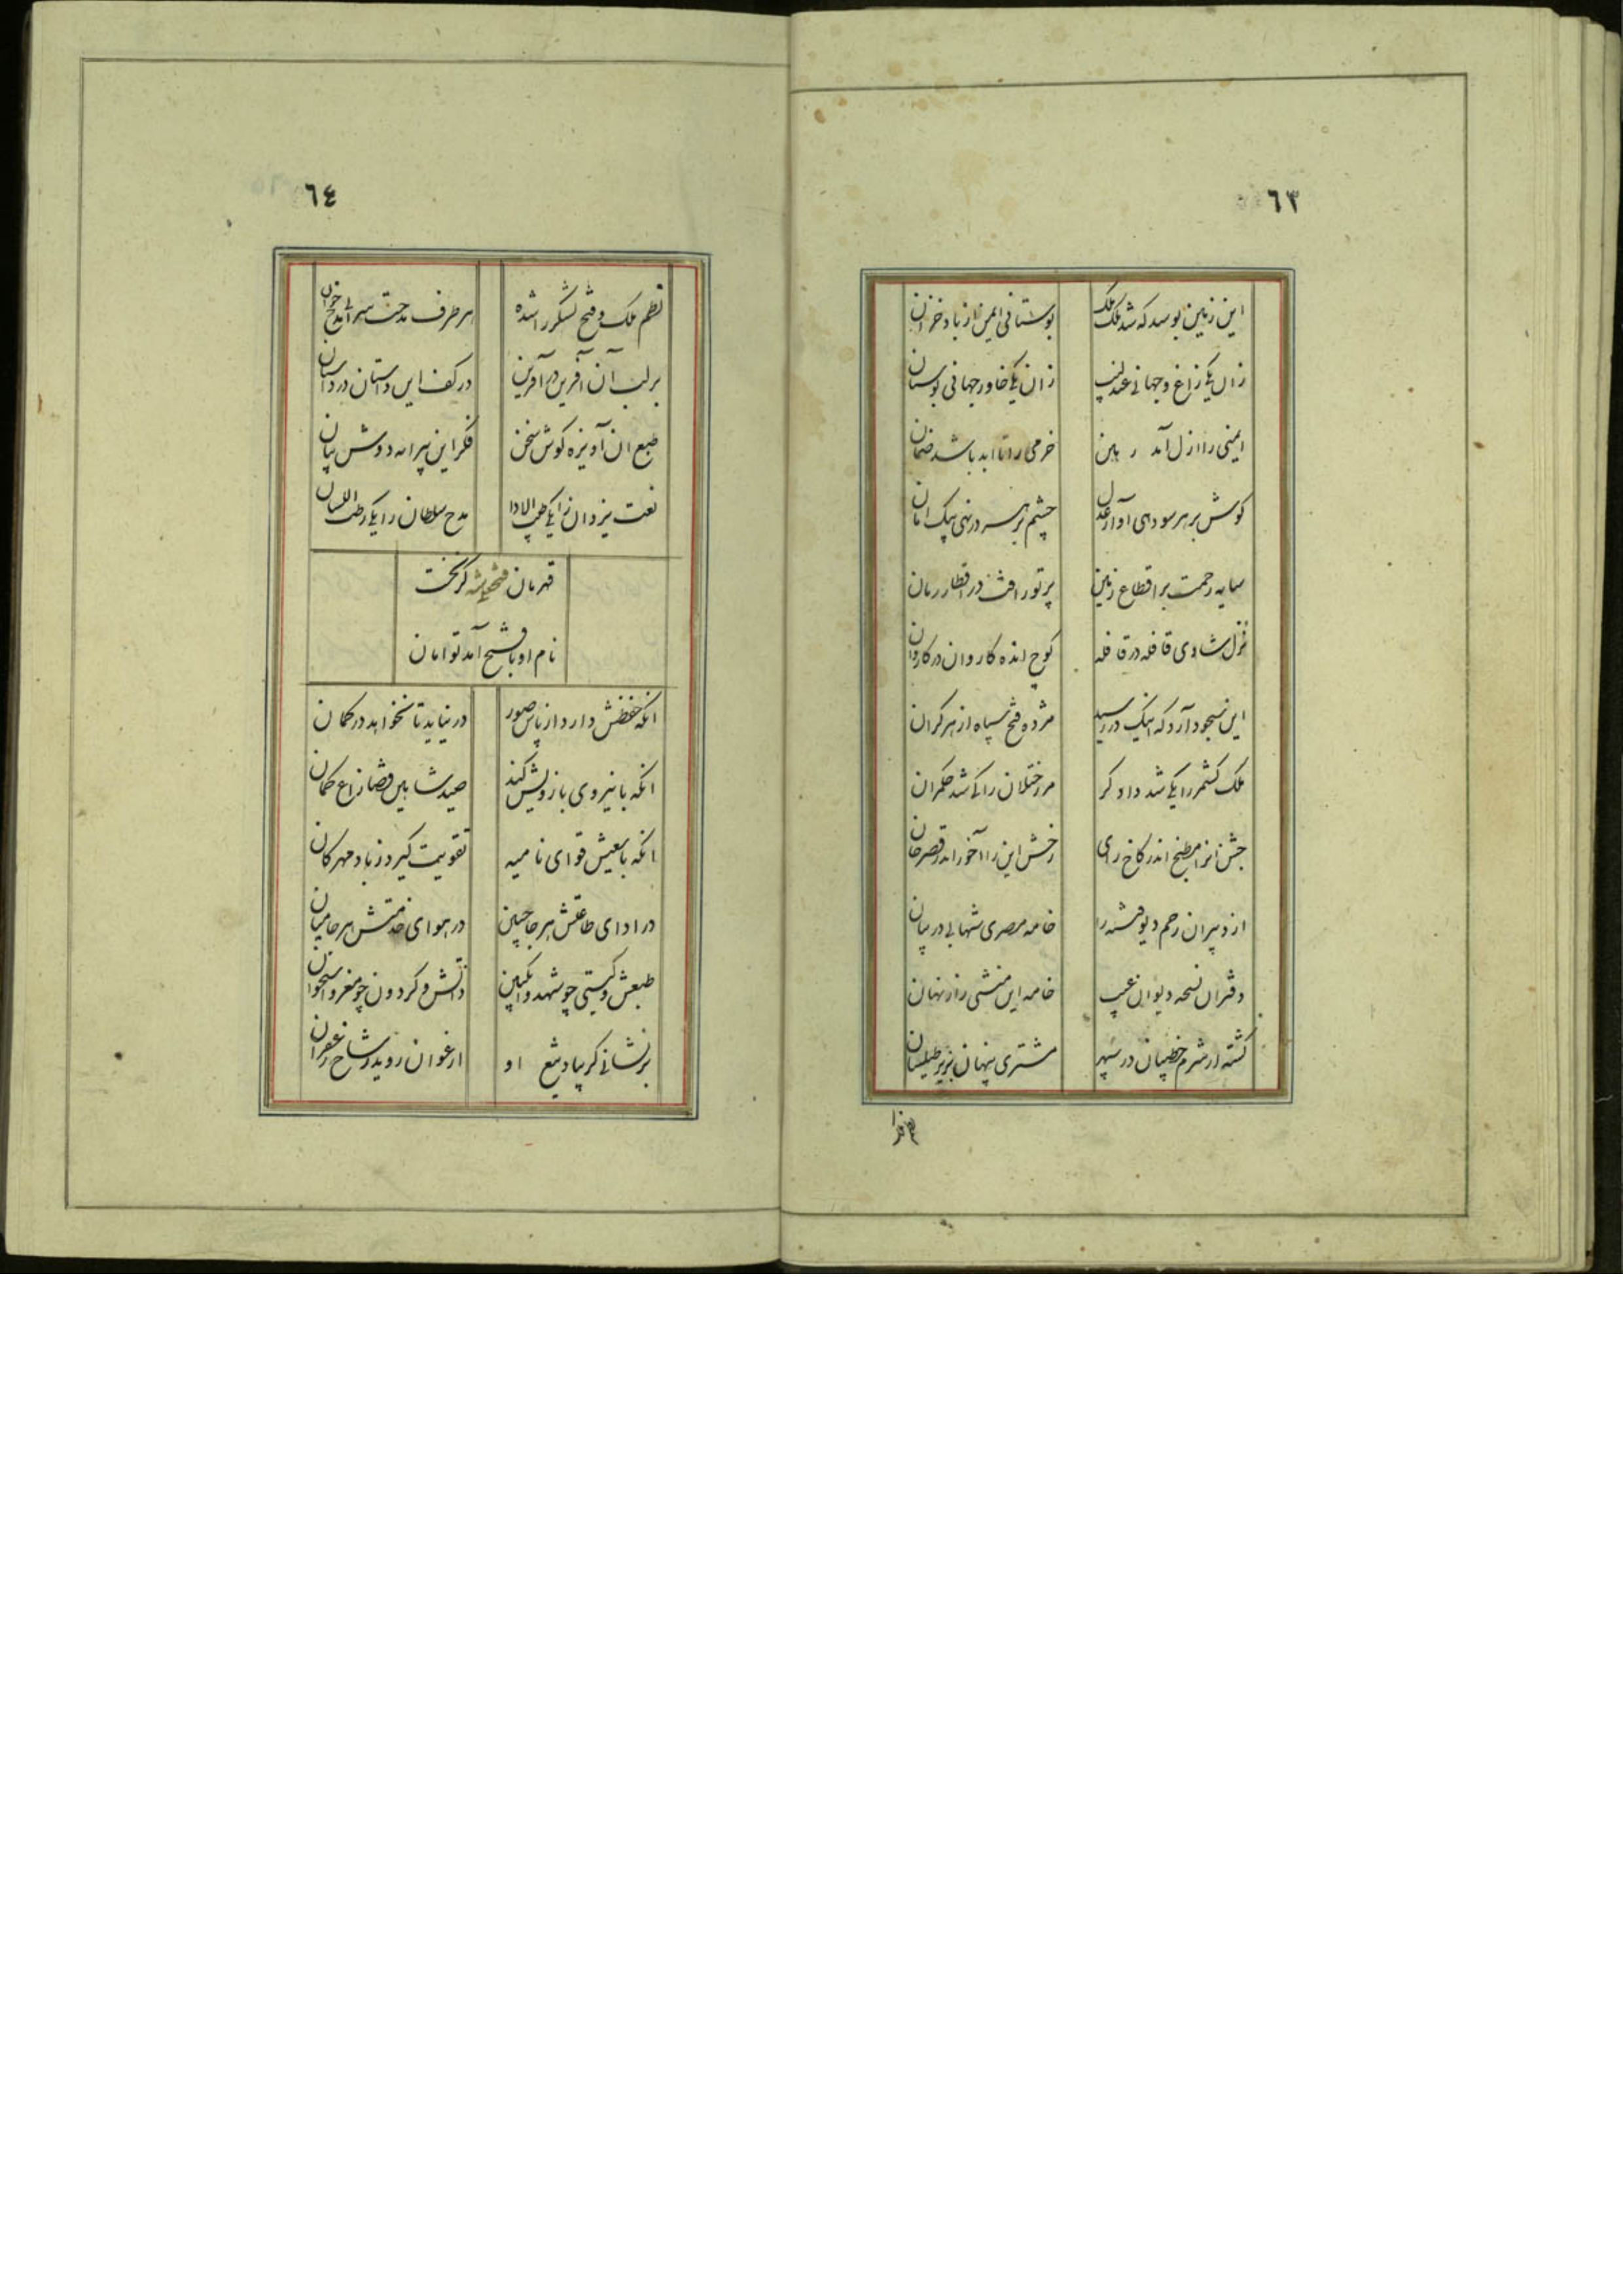 ٦٣
این زمین بوسد که شد ملک ملک بوستانی ایمن از باد خزان
زان یکی زاغ و جهانی عندلیب زان یکی خاور جهانی بوستان
ایمنی را از ازل آمد رهین خرمی را تا ابد باشد ضمان
کوش بر هر سو دهی آواز عدل چشم بر هر سو نهی پیک امان
سایه رحمت بر اقطاع زمین پرتو رافت در اقطار زمان
نزل شادی قافله در قافله کوچ انده کاروان در کاروان
این سجود آرد که اینک در رسید مژده فتح سپاه از هر کران
ملک کشمر را یکی شد داد کر مرز ختلان را یکی شد حکمران
جشن انرا مطبخ اندر کاخ رای رخش این را آخور اندر قصر خان
از دبیران رجم دیو فتنه را خامه مصری شهابی در بیان
دفتر ان نسخه دیوان غیب خامه این منشی راز نهان
کشته از شرم خطیبان در سپهر مشتری پنهان بزیر طیلسان
٦٤
نظم ملک و فتح لشکر را شده هر طرف مدحت سرائی مدح خوان
بر لب آن آفرین در آفرین در کف این داستان در داستان
طبع ان آویزه کوش سخن فکر این پیرایه دوش بیان
نعت یزدان را یکی طیب الادا مدح سلطان را یکی رطب اللسان
قهرمان فتحعلیشه کز نخست
نام او با فتح آمد توامان
انکه حفظش دارد از پاس صور در نیاید تا نخواهد در کمان
انکه با نیروی بازویش کند صید شاهین قضا زاغ کمان
انکه با سعیش قوای نامیه تقویت کیرد ز باد مهرکان
در ادای طاعتش هر جا جبین در هوای خدمتش هر جا میان
طبعش و کیتی چو شهد و انکبین ذاتش و کردون چو مغز و استخوان
بر نشانی کر بیاد تیغ او ارغوان روید ز شاخ زعفران